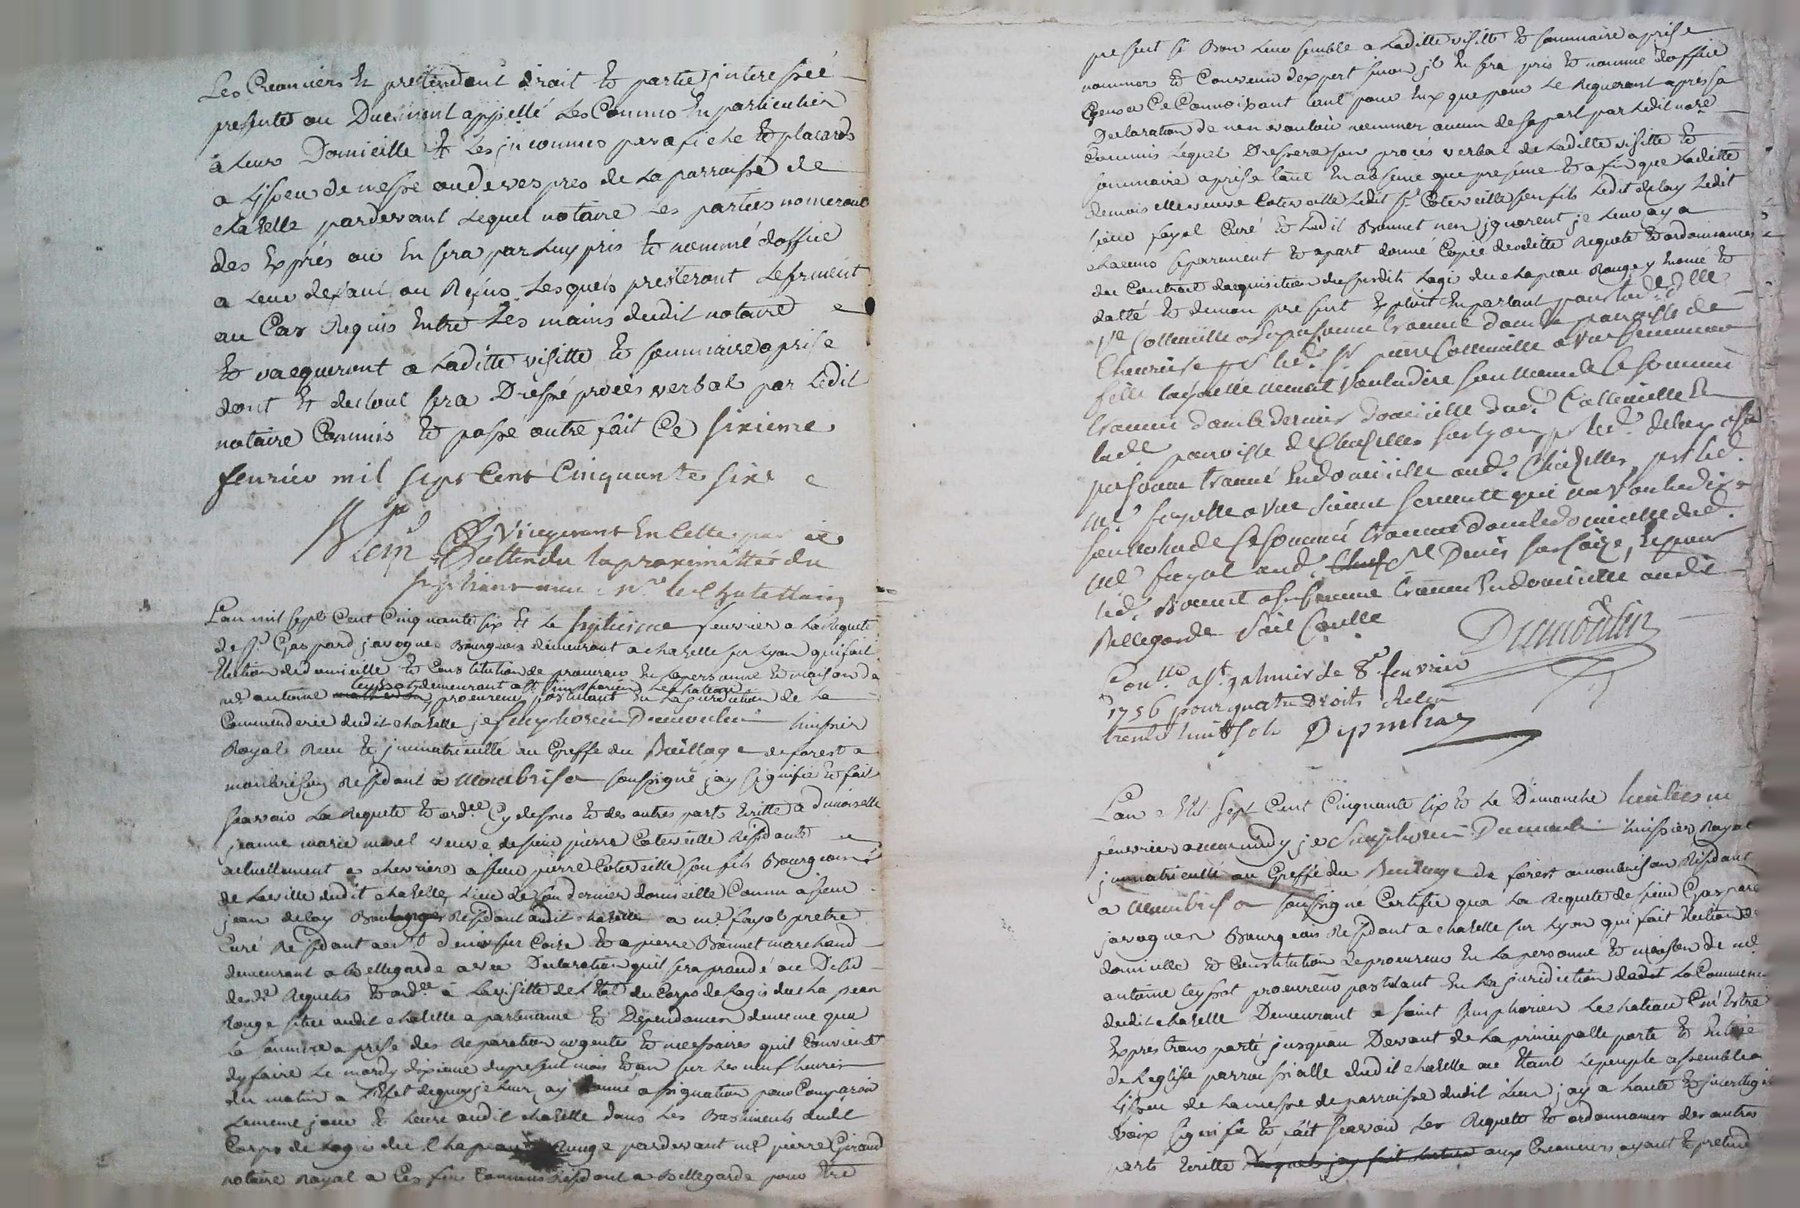 Les Creanciers Et pretendant droit & parties interessée
presente ou Duement appellé Les Connus En particulier
à Leurs Domicille & Les jnconnus par afiche & placards
a L'issue de messe ou de vespres de La parroisse de
chazelle pardevant Lequel notaire Les parties nomeront
des Experts ou En sera par Luy pris & nommé d'office
a Leur defaut ou Refus Lesquels presteront Le serment
au Cas Requis Entre Les mains dudit notaire
& vacqueront a Laditte visitte & sommaire aprise
dont & du tout sera Dressé procès verbal par Ledit
notaire Commis & passe outre fait Ce sixieme
feuvrier mil sept Cent Cinquante six
Vicegerant En Cette partie
attendu la proximitté du
Mr le Chatellain
L'an mil sept Cent Cinquante six & Le septieme feuvrier a La Requete
de Sr Gaspard javogues Bourgeois demeurant a chazelle sur Lyon qui fait
Election de domicille & Constitution de procureur En La personne & maison de
me antoine teyssot demeurant a St simphorien Le chateau procureur postulant En La juridiction de La
Commanderie dudit chazelle je simphorien Dumoulin huissier
Royal Receu & jmmatriculle au Greffe du Bailliage de forest a
montbrison Residant a Montbrison soussigné jay signiffié & fait
scavoir La Requete & ordce Cy dessus & des autres parts Ecritte a demoiselle
jeanne marie morel veuve de sieur pierre Coteville Residante
actuellement a chevrieres a sieur pierre Coteville son fils Bourgeois
de La ville dudit chazelle Lieu de son dernier domicille Connu a sieur
jean delay Residant audit chazelle a me fayol pretre
Curé Residant a St denis sur Coise & a pierre Bonnet marchand
demeurant a Bellegarde avec Declaration quil sera procedé au Desir
desd. Requete & ordce à La visitte de L'Etat du Corps de Logis du chapeau
Rouge situé audit chazelle apartenance & Dependances de meme qu'a
La sommaire aprise des Reparations urgentes & necessaires quil Convient
dy faire Le mardy dixieme du present mois & an sur Les neuf heures
du matin a L'Effet dequoy je Leur ay donné assignation pour Comparoir
Lesmeme jour & heure audit chazelle dans Les Batiments dudit
Corps de Logis du Chapeau Rouge pardevant me pierre Giraud
notaire Royal a Ces fins Commis Residant a Bellegarde pour Etre
present si Bon Leur semble a Laditte visitte & sommaire aprise
nommer & Convenir d'expert sinon jl En sera pris & nommé d'office
Gens a Ce Connoissant tant pour Eux que pour Le Requerant apres sa
Declaration de n'en vouloir nommer aucun de sa part par Ledit nore
Commis Lequel Dressera son procès verbal de Laditte visitte &
sommaire aprise tant En absence que presence & afin que Laditte
demoiselle veuve Coteville Ledit Sr Coteville son fils Ledit delay Ledit
sieur fayol Curé & Ledit Bonnet n'en jgnorent je Leur ay a
chacuns separement & apart donné Copie desditte Requete & ordonnance
du Contrat d'acquisition dususdit Logis du chapeau Rouge y Enoncé &
datté & de mon present Exploit En parlant pour lad. Dlle
Ve Colleville a sa personne trouvée dans la paroisse de
Chevriere pr led. Sr pierre Colleville a une femme
fille laquelle n'a voulu dire son nom de Ce sommé
trouvée dans le dernier domicille dud. Colleville En
lad. paroisse de Chazelles sur Lyon pr led. delay a sa
personne trouvé En domicille aud. Chazelles, pr led.
me fayolle a une sienne servante qui n'a voulu dire
son nom de Ce sommé trouvée dans le domicille dud.
me fayol aud. St Denis sur Coize, Et pour
led. Bonnet a sa personne trouvé En domicille audit
Bellegarde Soit Conlle
Dumoulin
Conlle a St galmier le 8e feuvrier
1756 pour quatre Droits Reçu
trente huit sols
L'an Mil Sept Cent Cinquante six & Le Dimanche huitieme
feuvrier a heure de midy je Simphorien Dumoulin huissier Royal
jmmatriculé au Greffe du Bailliage de forest a montbrison Residant
a Montbrison soussigné Certifie qu'a La Requete de sieur Gaspard
javogues Bourgeois Residant a chazelle sur Lyon qui fait Election de
domicille & Constitution de procureur En La personne & maison de me
antoine teyssot procureur postulant En La juridiction dudit La Commanderie
dudit chazelle Demeurant a saint simphorien Le chateau m'Etre
Expres transporté jusqu'au Devant de La principalle porte & Entrée
de Leglise parroissialle dudit chazelle ou Etant Le peuple assemblé a
L'issue de La messe de parroisse dudit Lieu jay a haute & jntelligible
voix signifié & fait scavoir Les Requete & ordonnances des autres
parts Ecritte aux Creanciers ayant & pretend